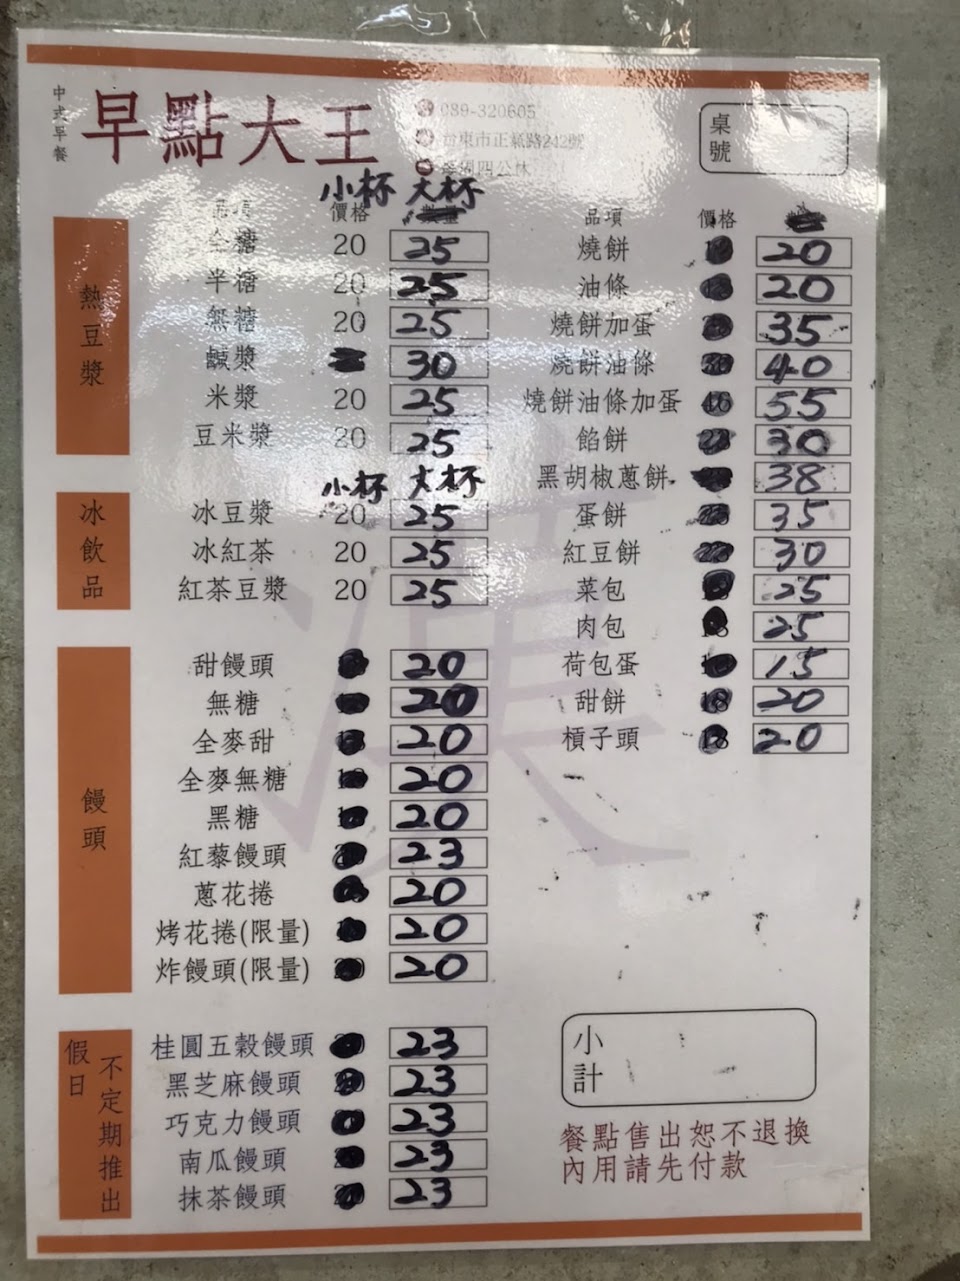 中式早餐
早點大王
089-320605
台東市正氣路242號
每週四公休
桌號
小杯 大杯
品項 價格
全糖 20 25
半糖 20 25
無糖 20 25
鹹漿 30
米漿 20 25
豆米漿 20 25
熱豆漿
小杯 大杯
冰豆漿 20 25
冰紅茶 20 25
紅茶豆漿 20 25
冰飲品
甜饅頭 20
無糖 20
全麥甜 20
全麥無糖 20
黑糖 20
紅藜饅頭 23
蔥花捲 20
烤花捲(限量) 20
炸饅頭(限量) 20
饅頭
桂圓五穀饅頭 23
黑芝麻饅頭 23
巧克力饅頭 23
南瓜饅頭 23
抹茶饅頭 23
假日
不定期推出
品項 價格
燒餅 20
油條 20
燒餅加蛋 35
燒餅油條 40
燒餅油條加蛋 55
餡餅 30
黑胡椒蔥餅 38
蛋餅 35
紅豆餅 30
菜包 25
肉包 25
荷包蛋 15
甜餅 20
槓子頭 20
漢
小計
餐點售出恕不退換
內用請先付款